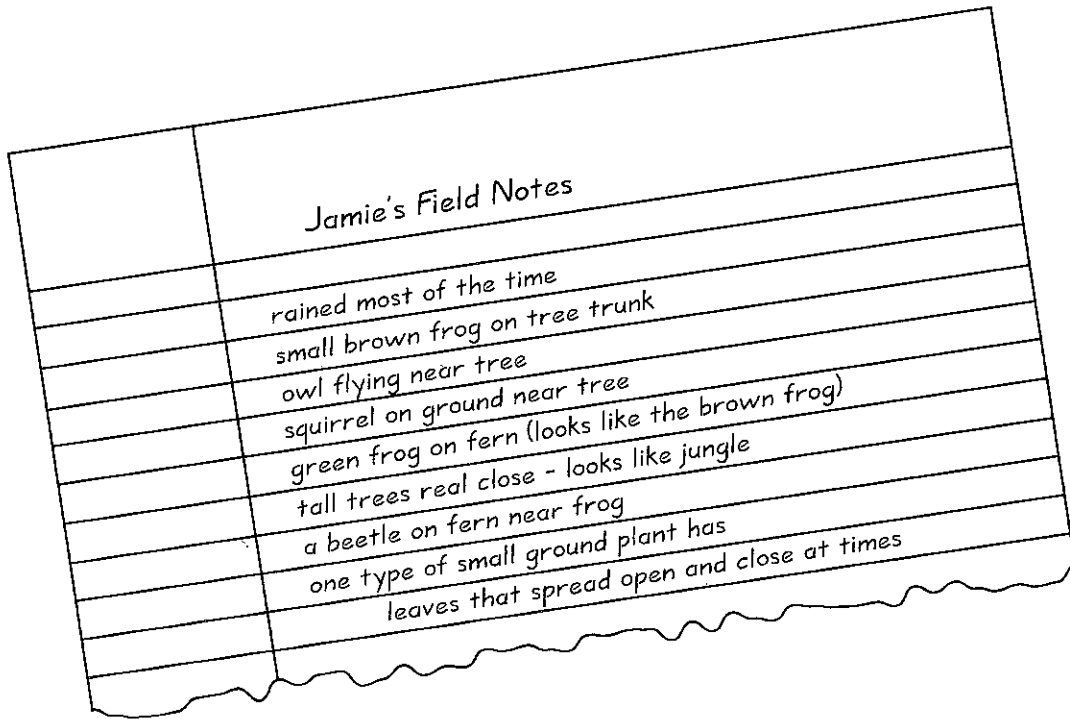 Jamie's Field Notes
rained most of the time
small brown frog on tree trunk
owl flying near tree
squirrel on ground near tree
green frog on fern (looks like the brown frog)
tall trees real close - looks like jungle
a beetle on fern near frog
one type of small ground plant has
leaves that spread open and close at times